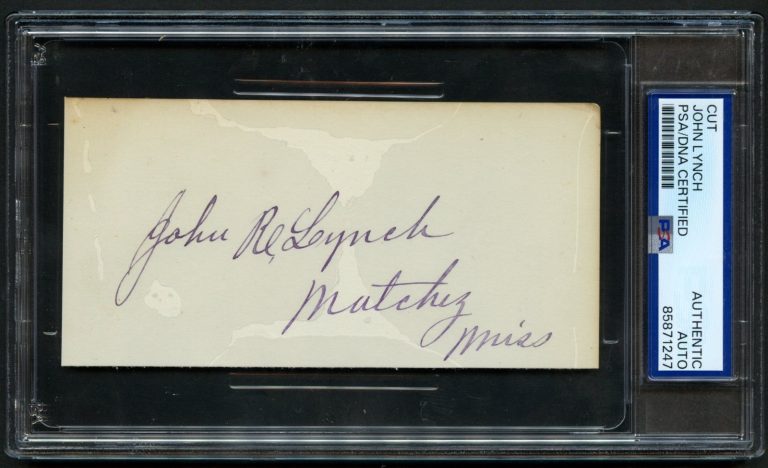 John R. Lynch
Natchez
Miss
CUT
JOHN LYNCH
PSA/DNA CERTIFIED
PSA
AUTHENTIC
AUTO
85871247